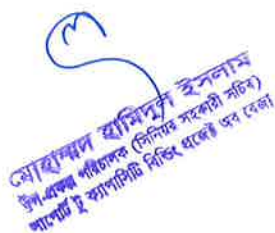 মোহাম্মদ হামিদুল ইসলাম
উপ-প্রকল্প পরিচালক (সিনিয়র সহকারী সচিব)
সাপোর্ট টু ক্যাপাসিটি বিল্ডিং প্রজেক্ট অব বেজা